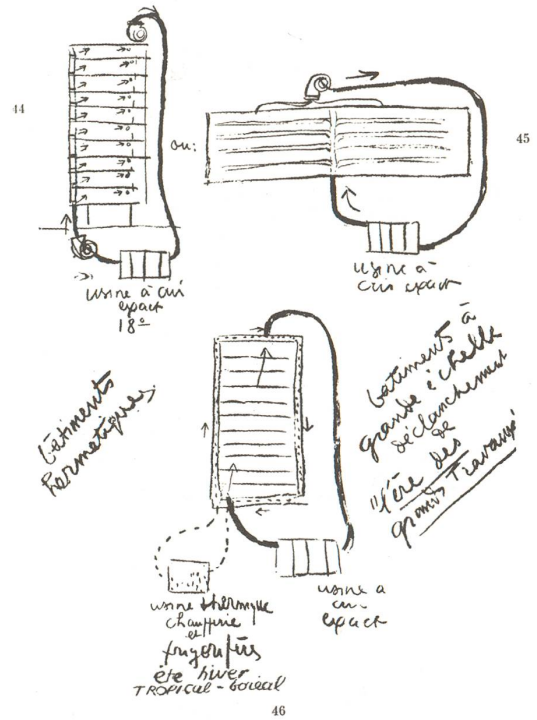 44
45
ou:
usine à air
exact
18º
usine à
air exact
bâtiments
hermétiques
bâtiments à
grande échelle
déclanchement
de
"l'ère des
grands Travaux"
usine thermique
chaufferie
et
frigorifères
été hiver
TROPICAL - boréal
usine a
air
exact
46